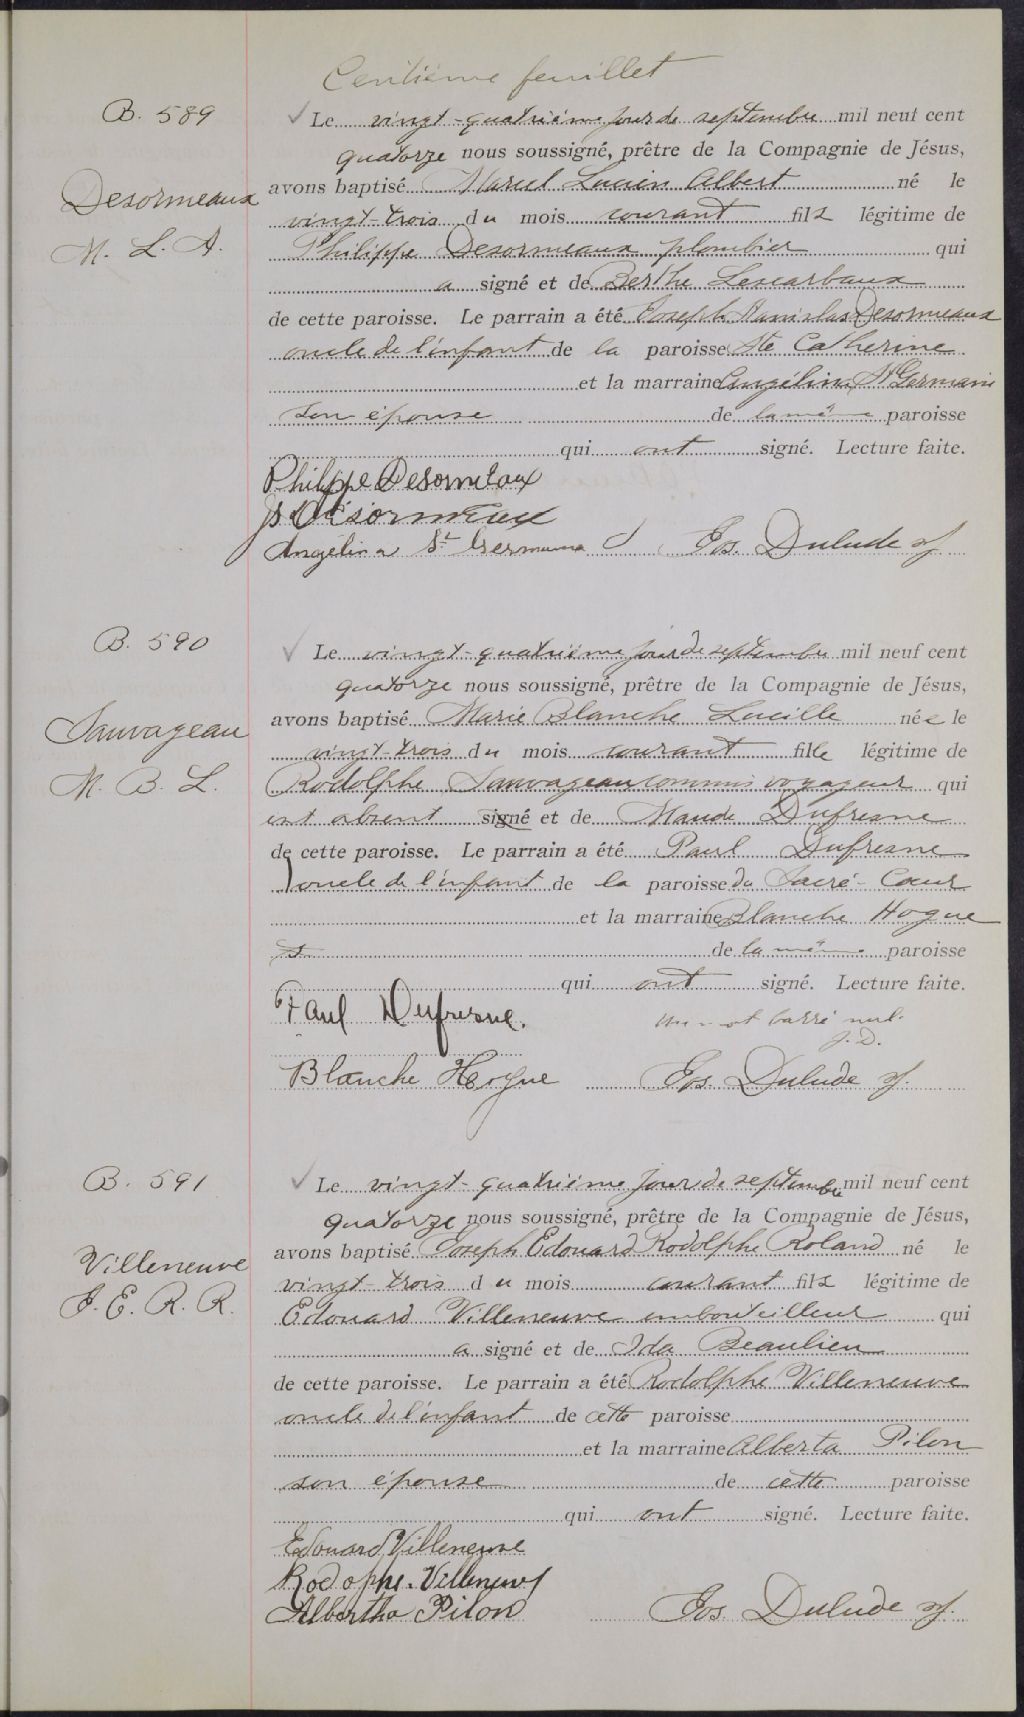 Centième feuillet
B. 589
Le vingt-quatrième jour de septembre mil neuf cent
quatorze nous soussigné, prêtre de la Compagnie de Jésus,
Desormeaux
avons baptisé Marcel Lucien Albert né le
vingt-trois du mois courant fils légitime de
M. L. A.
Philippe Desormeaux plombier qui
a signé et de Berthe Lescarbaux
de cette paroisse. Le parrain a été Joseph Stanislas Desormeaux
oncle de l'enfant de la paroisse Ste Catherine
et la marraine Angélina St Germain
son épouse de la même paroisse
qui ont signé. Lecture faite.
Philippe Desormeaux
Js Désormeaux
Angélina St Germain Jos. Dulude sj.
B. 590
Le vingt-quatrième jour de septembre mil neuf cent
quatorze nous soussigné, prêtre de la Compagnie de Jésus,
Sauvageau
avons baptisé Marie Blanche Lucille née le
vingt-trois du mois courant fille légitime de
M. B. L.
Rodolphe Sauvageau commis voyageur qui
est absent signé et de Maude Dufresne
de cette paroisse. Le parrain a été Paul Dufresne
oncle de l'enfant de la paroisse du Sacré-Cœur
et la marraine Blanche Hogue
de la même paroisse
qui ont signé. Lecture faite.
Paul Dufresne.
Un mot barré nul.
J. D.
Blanche Hogue Jos. Dulude sj.
B. 591
Le vingt-quatrième jour de septembre mil neuf cent
quatorze nous soussigné, prêtre de la Compagnie de Jésus,
Villeneuve
avons baptisé Joseph Edouard Rodolphe Roland né le
vingt-trois du mois courant fils légitime de
J. E. R. R.
Edouard Villeneuve embouteilleur qui
a signé et de Ida Beaulieu
de cette paroisse. Le parrain a été Rodolphe Villeneuve
oncle de l'enfant de cette paroisse
et la marraine Alberta Pilon
son épouse de cette paroisse
qui ont signé. Lecture faite.
Edouard Villeneuve
Rodophe. Villeneuve
Albertha Pilon Jos. Dulude sj.